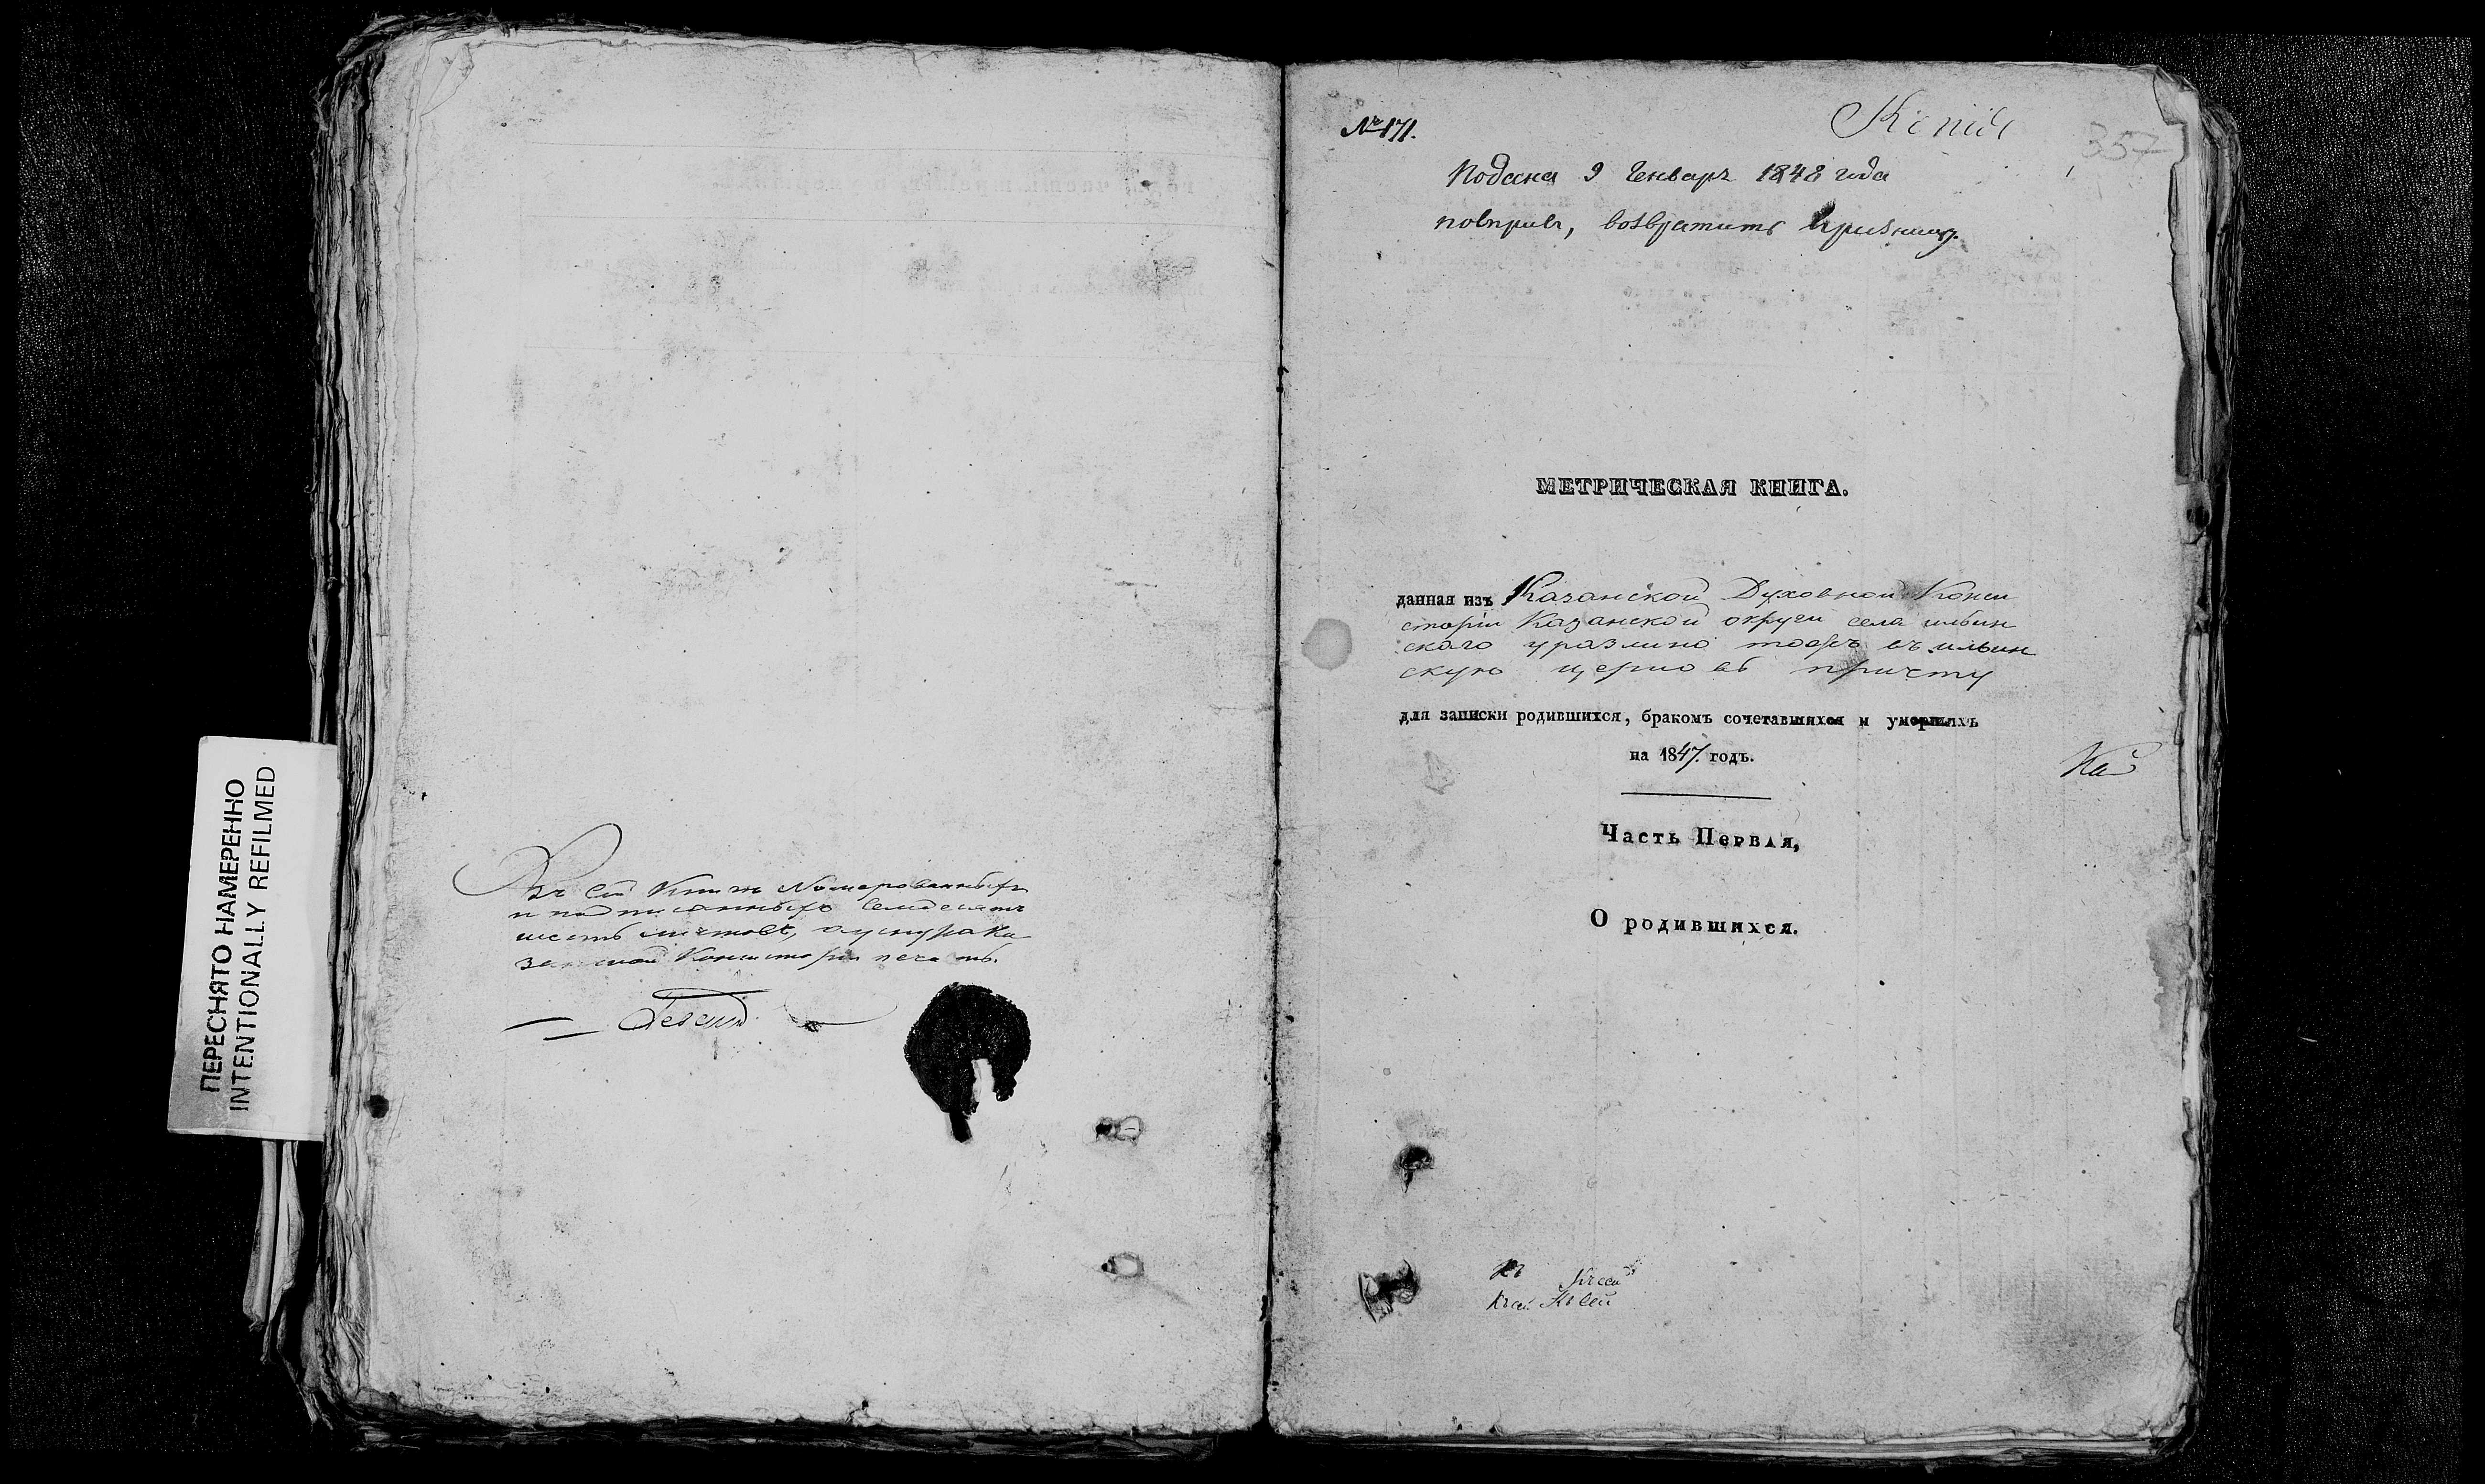 ПЕРЕСНЯТО НАМЕРЕННО
INTENTIONALLY REFILMED
Въ сей Книгѣ Номерованныхъ
и подписанныхъ Семдесятъ
шесть листовъ, а у шнура Ка
занской Консисторіи печать.
№ 171.
Копія
357
Подана 9 Генваря 1848 года
повѣрить, возвратить
МЕТРИЧЕСКАЯ КНИГА.
данная изъ Казанской Духовной Конси
сторіи Казанской округи села ильин
скаго уразлино тожъ въ ильин
скую церковь причту
для записки родившихся, бракомъ сочетавшихся и умершихъ
на 1847. годъ.
Ка
Часть Первая,
О родившихся.
Къ Къ сей
Къ сей Къ сей